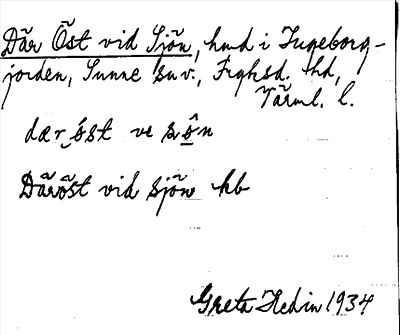 Där Öst vid Sjön, hmd i Ingeborg-
jorden, Sunne sn v., Fryksd. hd,
Värml. l.
dær ọ́st ve sộn
Däröst vid sjön kb
Greta Hedin 1934